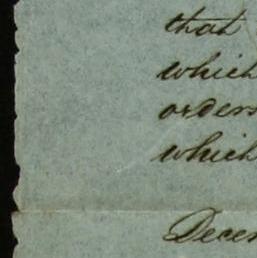 that
which
orders
which
Decem